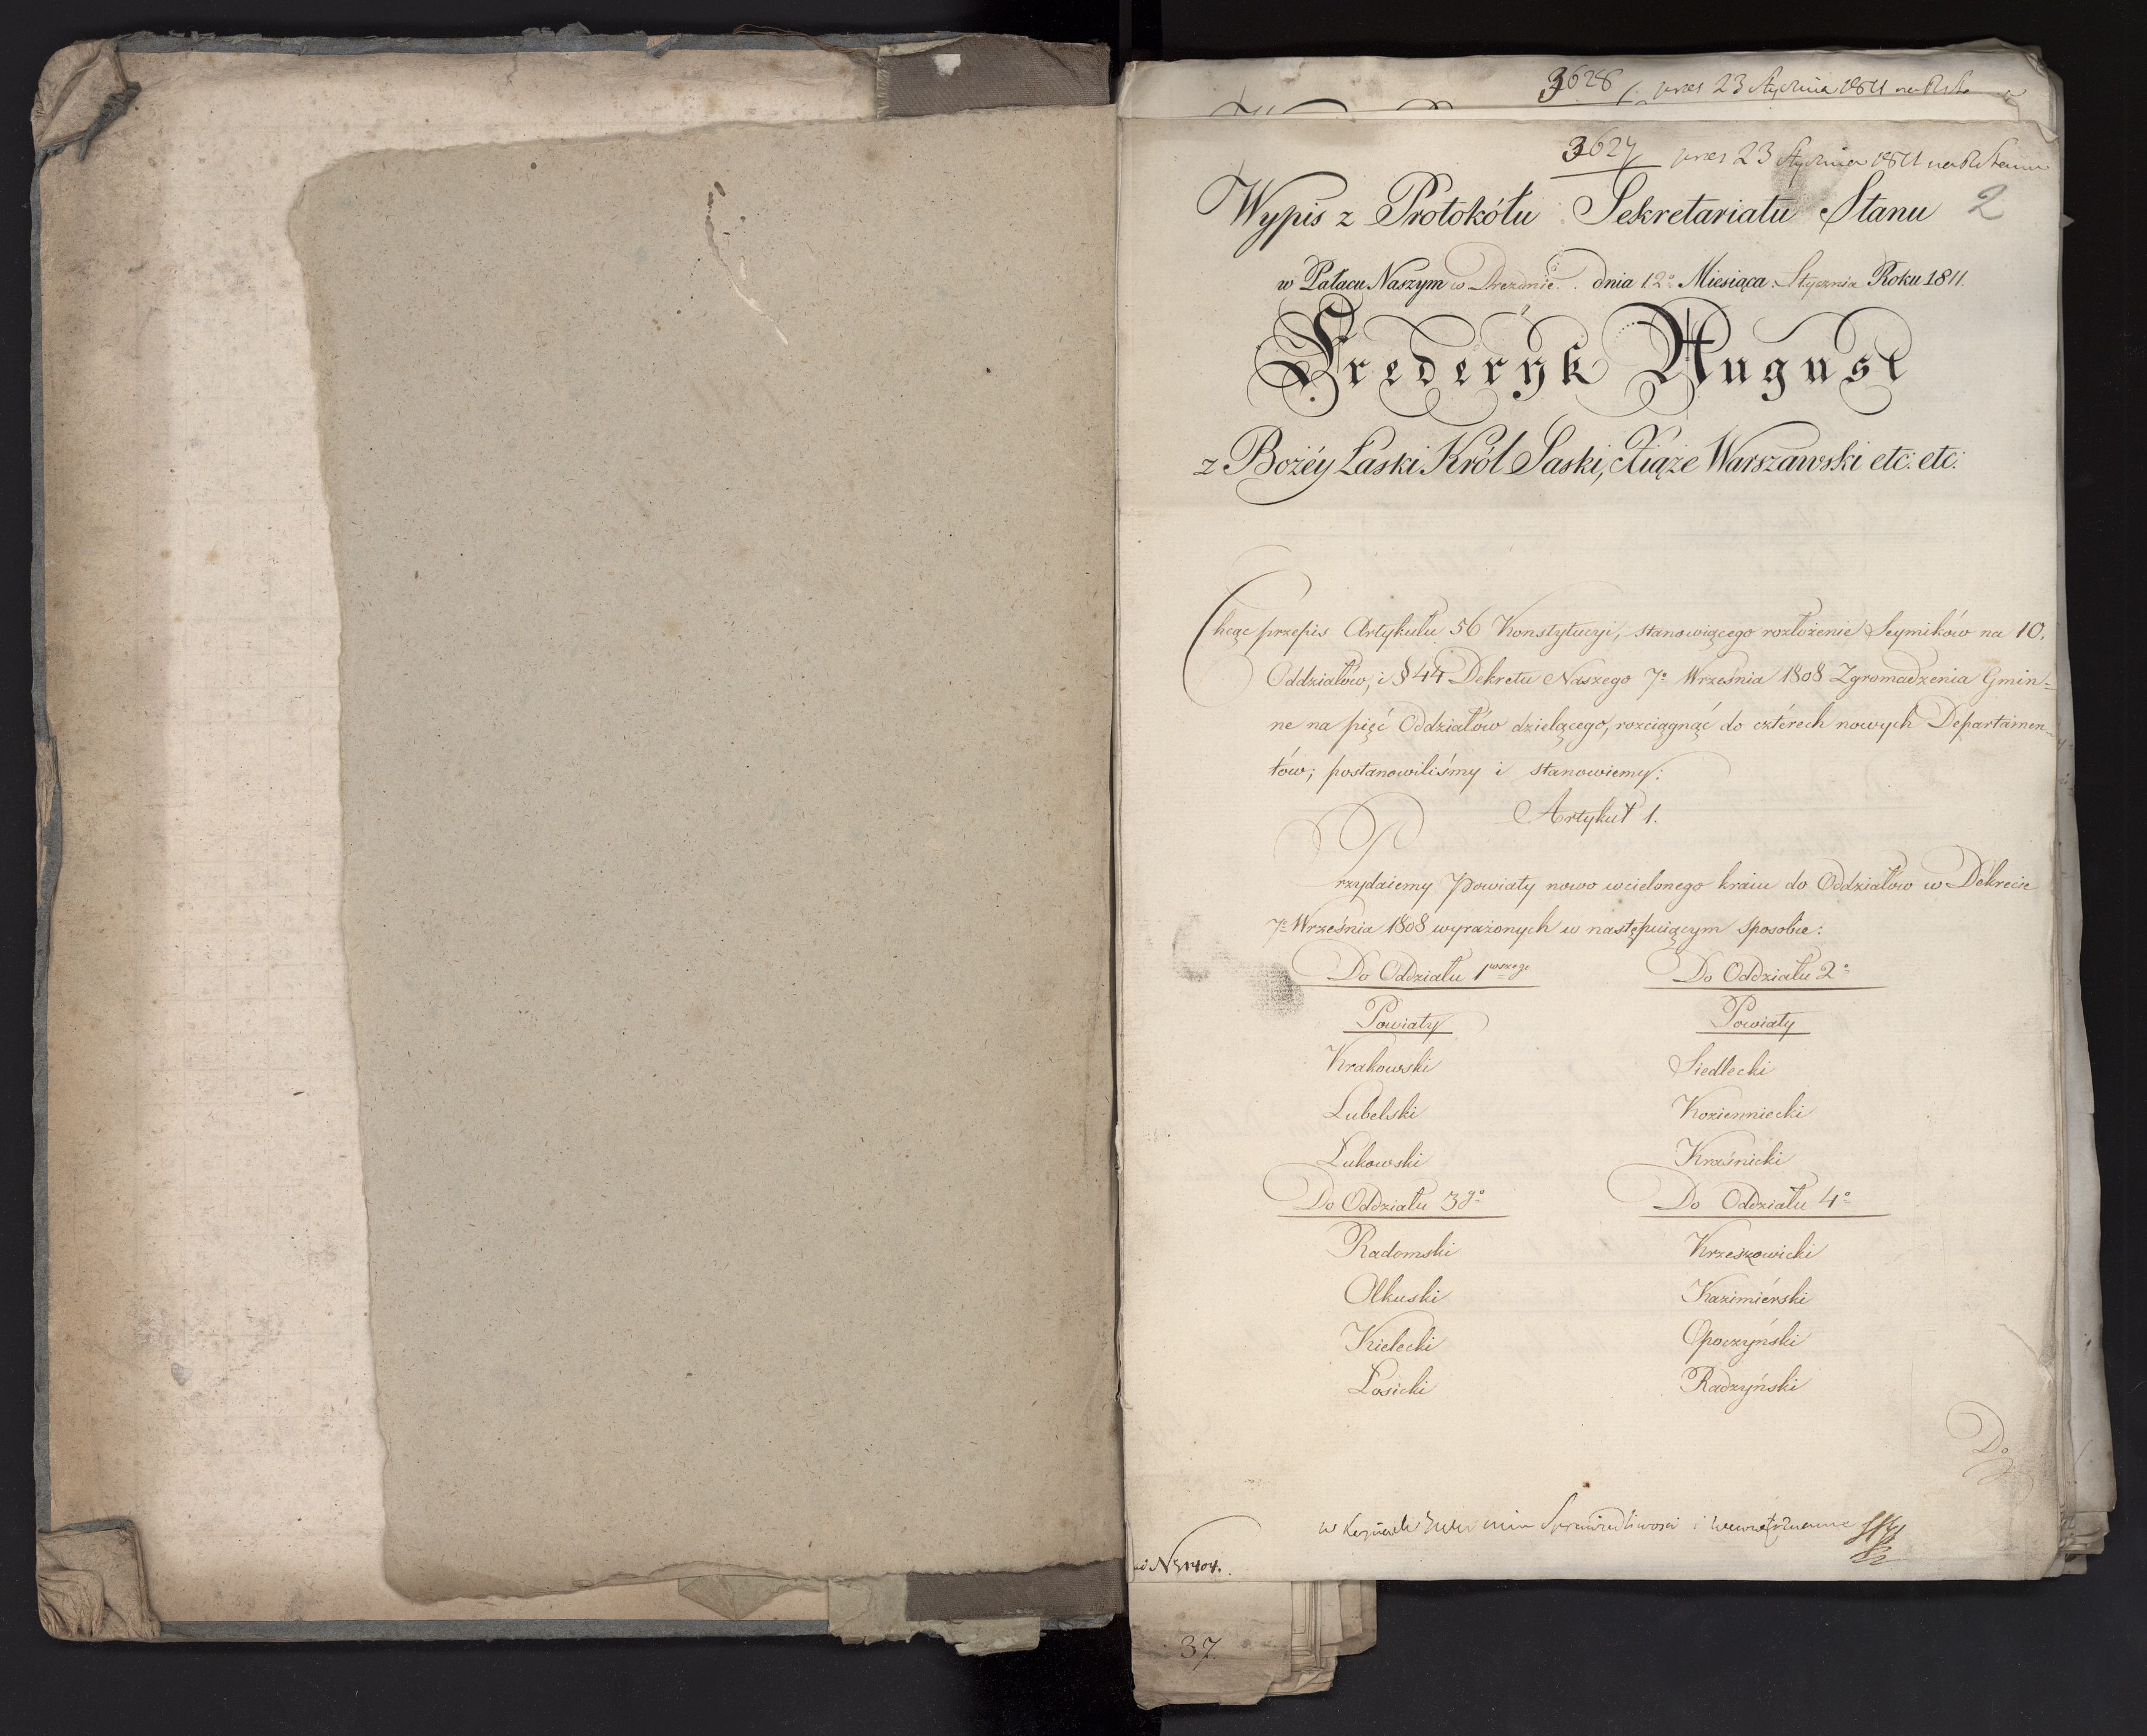 3628 23 Stycznia 1811
3627 23 Stycznia 1811
Wypis z Protokółu Sekretariatu Stanu 2
w Pałacu Naszym w Dreznie dnia 12º Miesiąca Stycznia Roku 1811.
Frederyk August
z Bożéy Łaski Król Saski, Xiąże Warszawski etc: etc:
Chcąc przepis Artykułu 56 Konstytucyi, stanowiącego rozłożenie Seymików na 10.
Oddziałów, i § 44 Dekretu Naszego 7º Września 1808 Zgromadzenia Gmin=
ne na pięć Oddziałów dzielącego, rozciągnąć do cztérech nowych Departamen=
tów; postanowiliśmy i stanowiemy:
Artykuł 1.
Przydaiemy Powiaty nowo wcielonego kraiu do Oddziałów w Dekrecie
7º Września 1808 wyrażonych w następuiącym sposobie:
Do Oddziału 1wszego Do Oddziału 2º
Powiaty Powiaty
Krakowski Siedlecki
Lubelski Kozienniecki
Łukowski Kraśnicki
Do Oddziału 3gº Do Oddziału 4º
Radomski Krzeszowicki
Olkuski Kazimiérski
Kielecki Opoczyński
Łosicki Radzyński
Do
Sprawiedliwości i Wewnętrznemu
N 31404.
37.